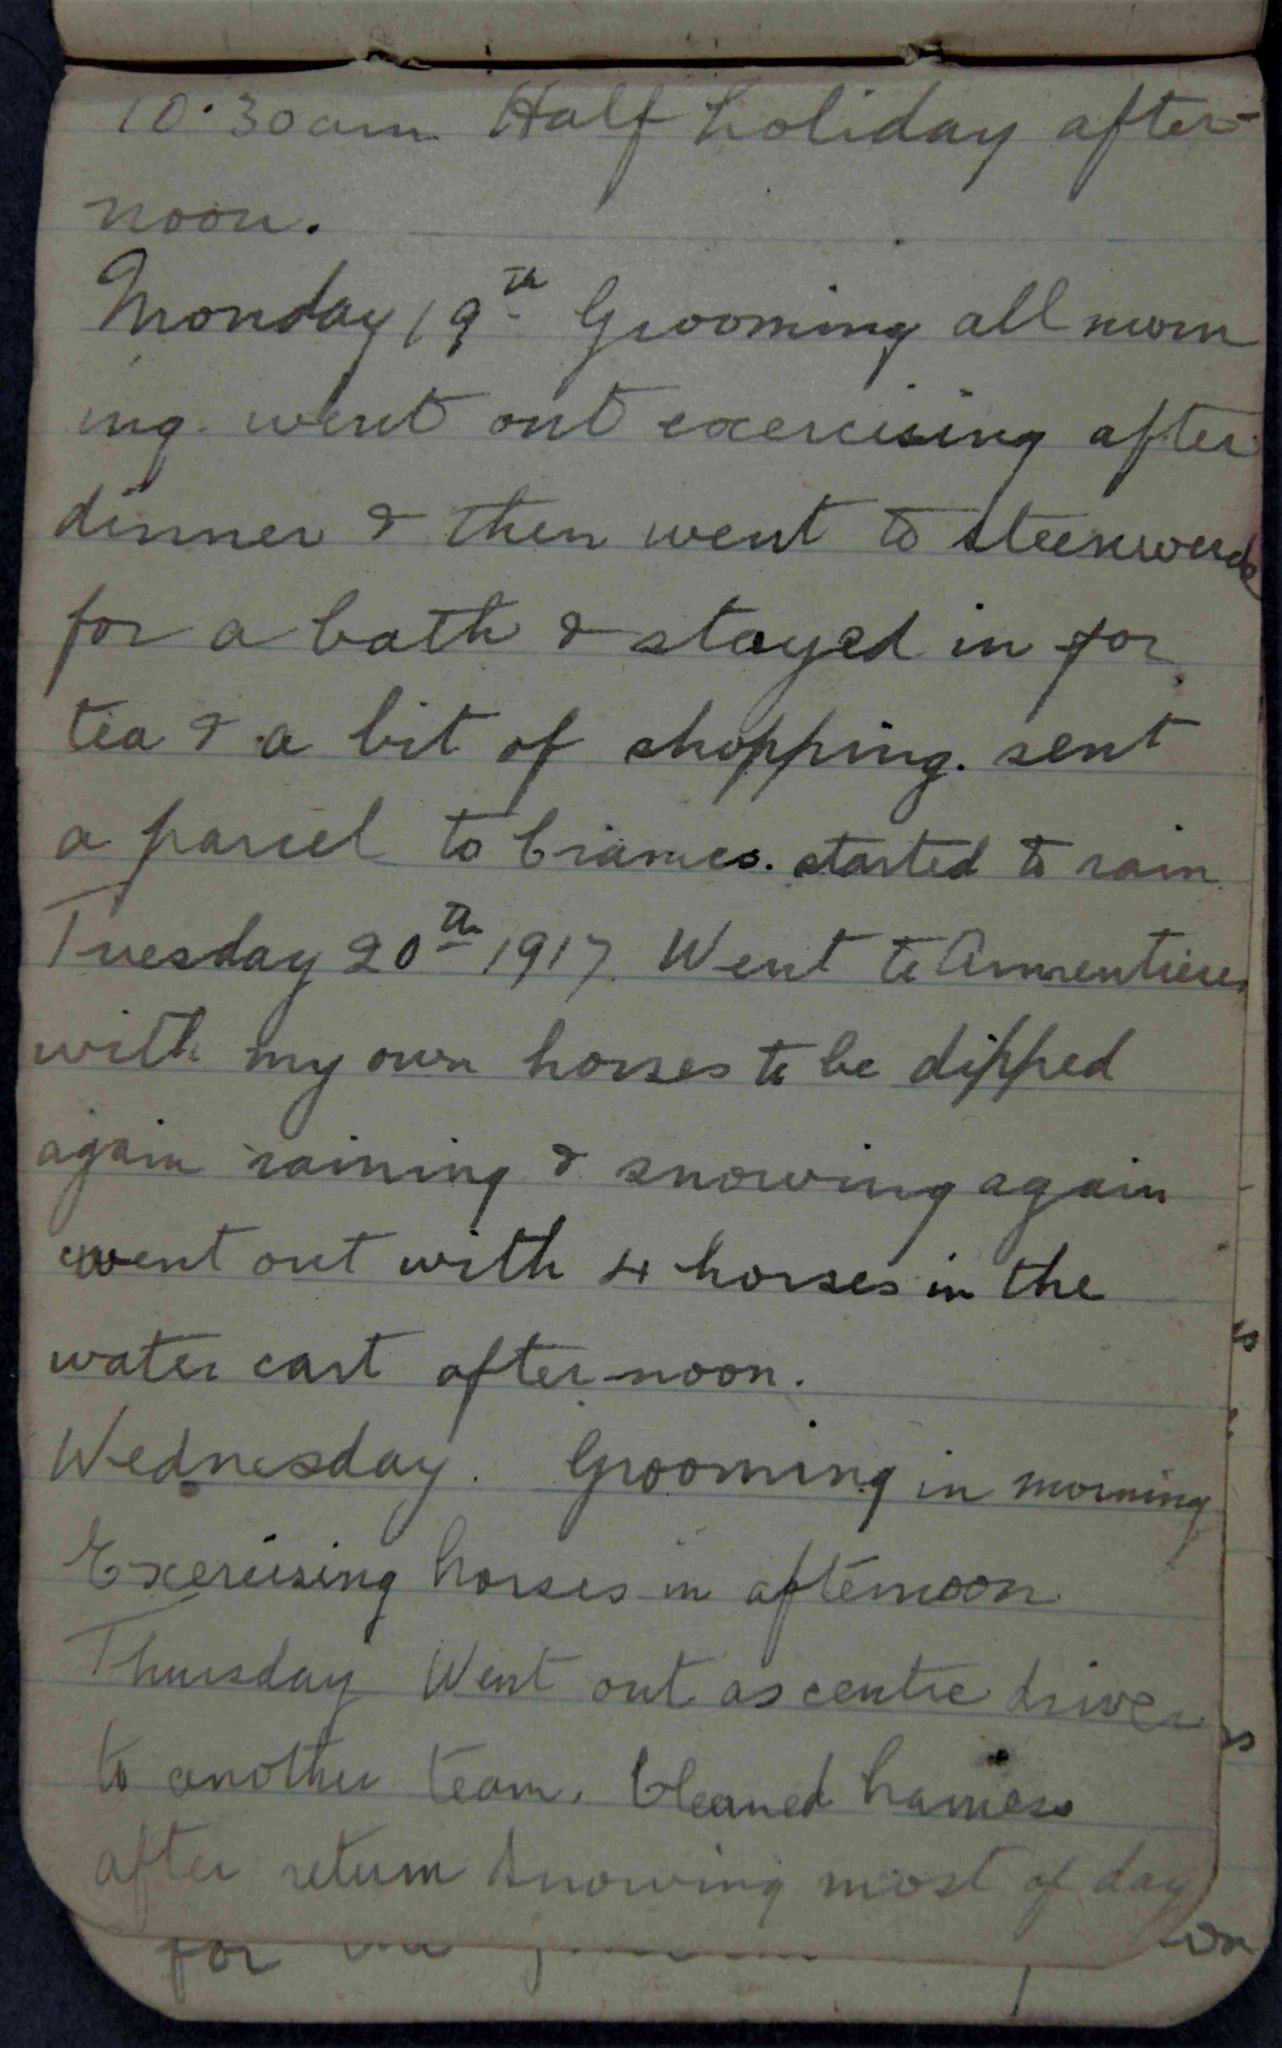 10.30am Half holiday after-
noon.
Monday 19th Grooming all morn
ing. went out exercising after
dinner & then went to Steenwerck
for a bath & stayed in for
tea & a bit of shopping. sent
a parcel to started to rain
Tuesday 20th 1917. Went to Armentieres
with my own horses to be dipped
again raining & snowing again
went out with 4 horses in the
water cart after-noon.
Wednesday. Grooming in morning
Exercising horses in afternoon
Thursday Went out as centre driver
to another team. Cleaned harness
after return snowing most of day
for